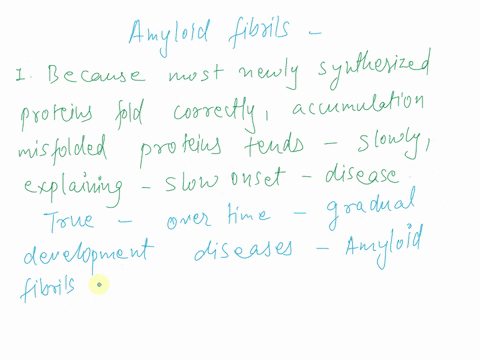 Amyloid fibrils -
I. Because most newly synthesized
proteins fold correctly, accumulation
misfolded proteins tends - slowly,
explaining - slow onset - disease.
True - over time - gradual
development diseases - Amyloid
fibrils